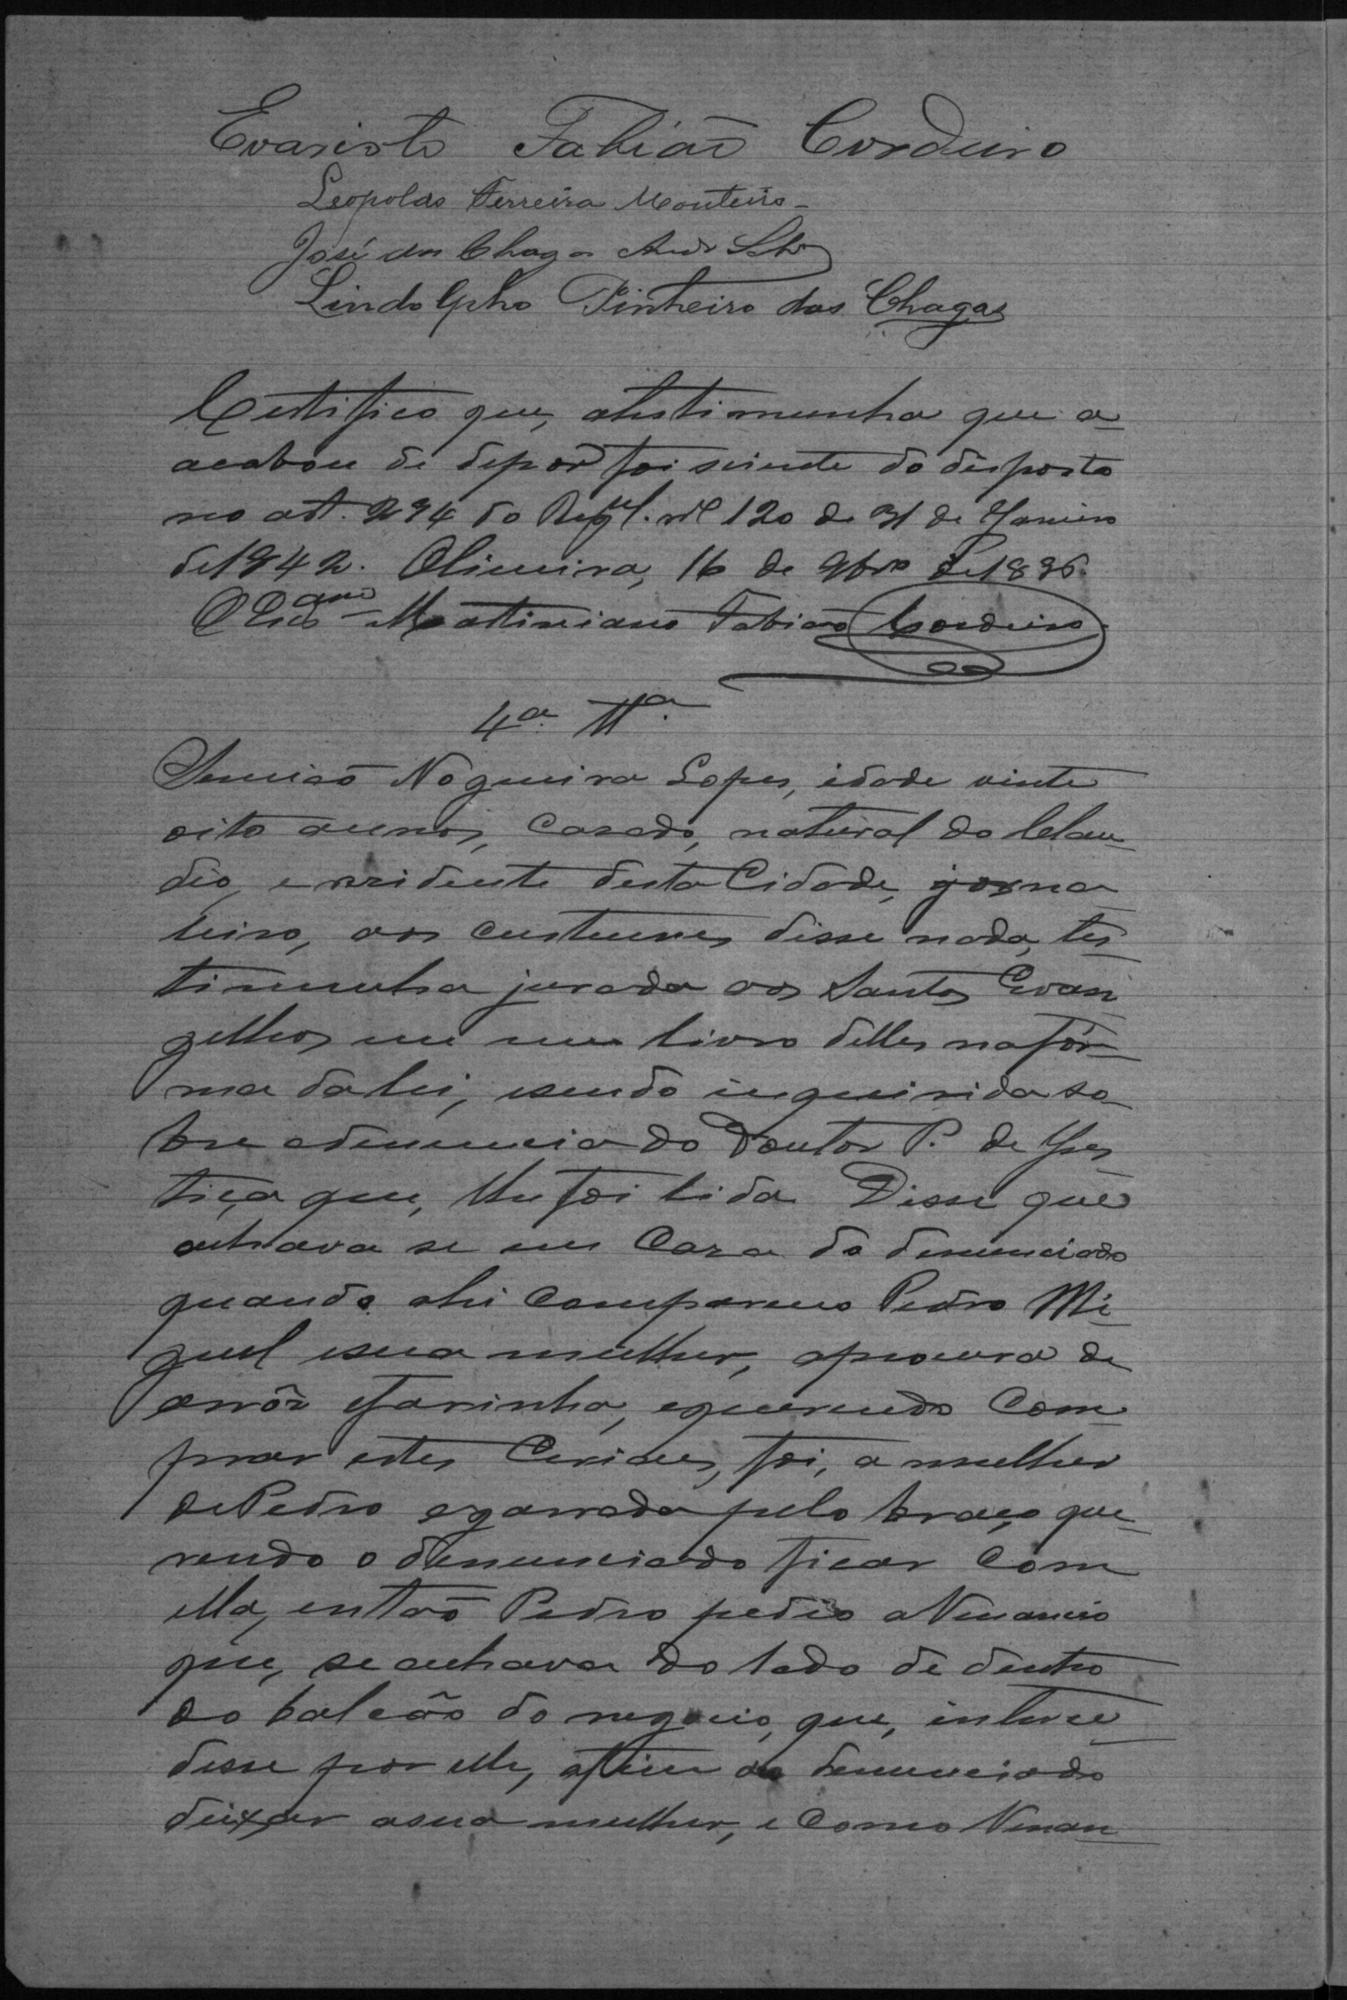 Evaristo Fabião Cordeiro
Leopoldo Ferreira Monteiro
José das Chagas Andr Silva
Lindolpho Pinheiro das Chagas
Certifico que, atestimunha que a
acabou de depôr foi sciente do desposto
no art. 294 do Regul. nº 120 de 31 de Janeiro
de 1842. Oliveira, 16 de 9bro de 1896.
O Escam Martiniano Fabião Cordeiro
4ª Tª
Nogueira Lopes, idade vinte
oito annos, casado, natural do Clau
dio, e rezidente desta Cidade, jorna
leiro, aos custumes disse nada, tes
timunha jurada aos Santos Evan
gelhos em um livro delles na fór
ma da lei, esendo inquirida so
bre adenuncia do Doutor P. de Jus
tiça que, lhe foi lida. Disse que
achava se em Caza do denunciado
quando ahi compareceu Pedro Mi
guel esua mulher, aprocura de
arrôz efarinha, equerendo Com
prar estes Ceriaes, foi, a mulher
de Pedro agarrada pelo braço que
rendo o denunciado ficar com
ella, então Pedro pedio aVenancio
que, se achava do lado de dentro
do balcão do negocio, que, interce
desse por elle, afim do denunciado
deixar asua mulher, e como Venan